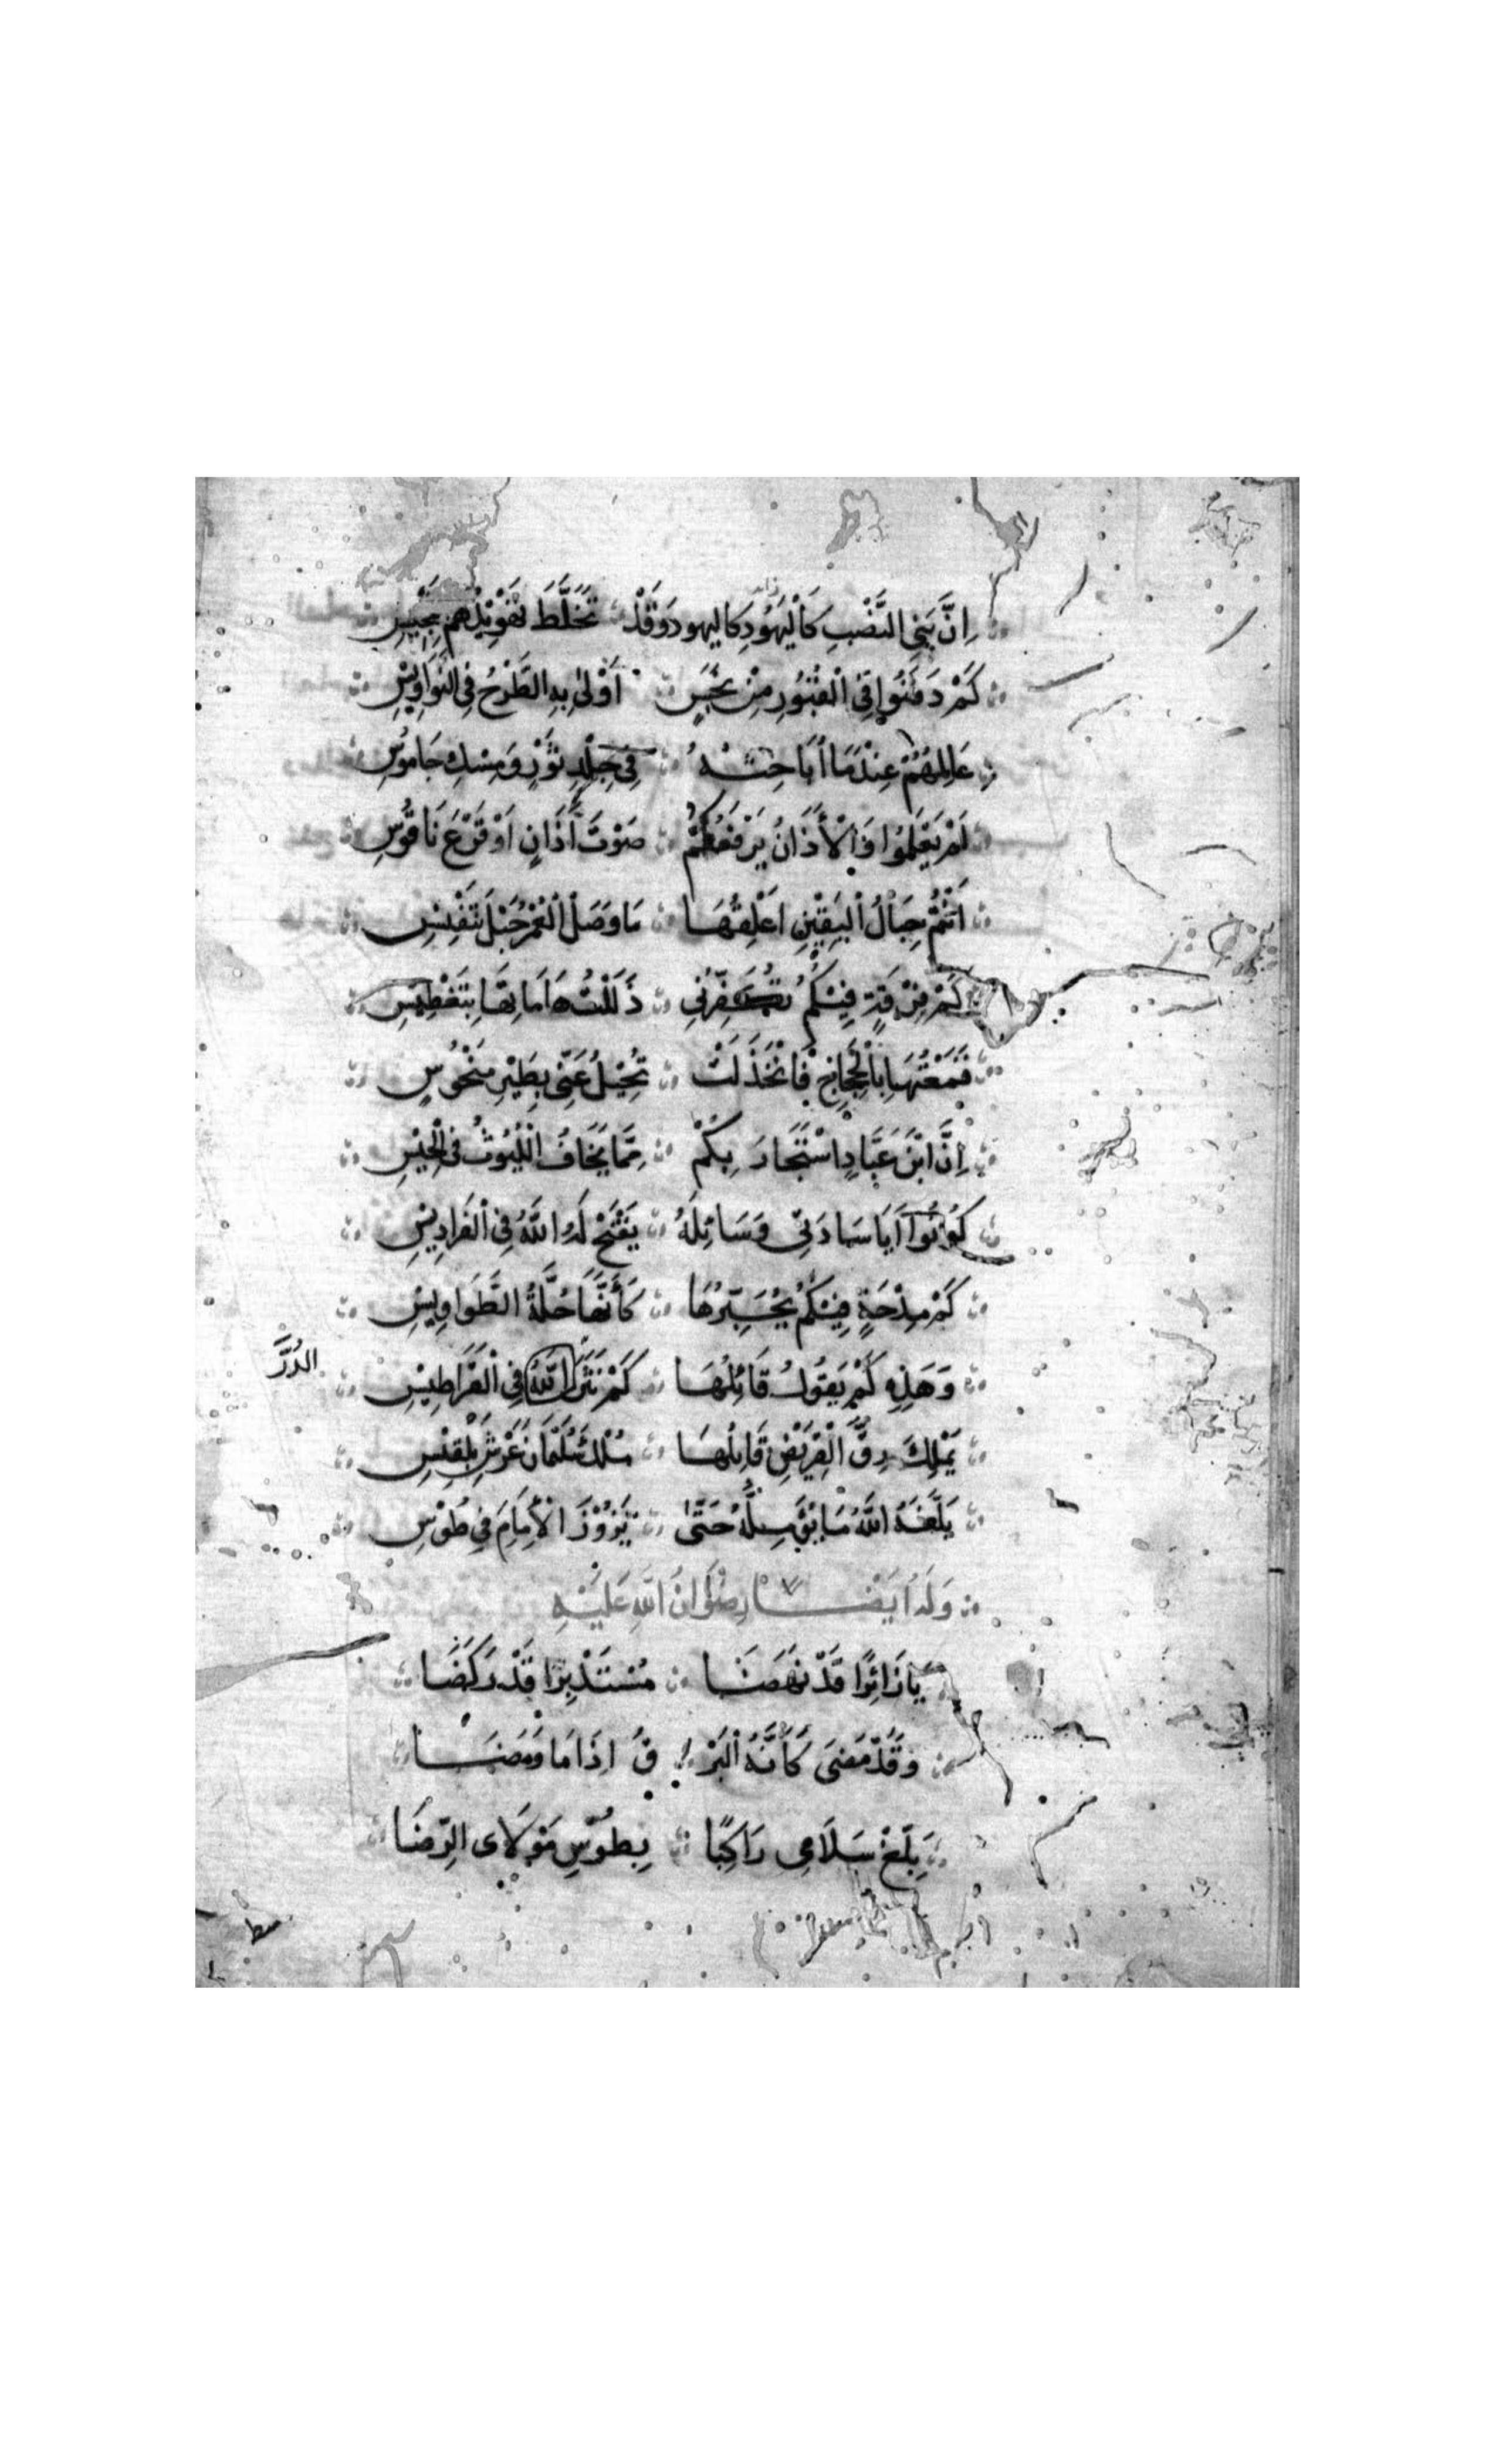 زائد
اِنَّ بَنِي النَّصْبِ كَالْيَهُودِ كاليهود وَقَدْ تَخَلَّطَ تَهْوِيدُهُمْ بِتَمْجِيسِ
كَمْ دَفَنُوا فِي الْقُبُورِ مِنْ نَجَسٍ اَوْلىٰ بِهِ الطَّرْحُ فِي النَّوَاوِيْسِ
عَالِمُهُمْ عِنْدَمَا أُبَاحِثُهُ فِي جِلْدِ ثَوْرٍ وَمَسْكِ جَامُوسِ
لَمْ يَعْلَمُوا وَالْأَذَانُ يَرْفَعُكُمْ صَوْتَ أَذَانٍ اَوْ قَرْعَ نَاقُوسِ
اَنْتُمْ حِبَالُ الْيَقِيْنِ اَعْلِقُهَا مَا وَصَلَ الْعُمْرُ حَبْلَ تَنْفِيْسِ
كَمْ فِرْقَةٍ فِيْكُمُ تُكَفِّرُنِي ذَلَّلْتُ هَامَاتِهَا بِتَفْطِيسِ
قَمَعْتُهَا بِالْحِجَاجِ فَانْخَذَلَتْ تُجْفِلُ عَنِّي بِطَيْرِ مَنْحُوسٍ
اِنَّ ابْنَ عَبَّادٍ اسْتَجَارَ بِكُمْ مِمَّا يَخَافُ اللُّيُوثُ فِي الْخِيْسِ
كُونُوا اَيَا سَادَتِي وَسَائِلَهُ يَفْتَحْ لَهُ اللَّهُ فِي الْفَرَادِيْسِ
كَمْ مِدْحَةٍ فِيْكُمْ يُحَبِّرُهَا كَأَنَّهَا حُلَّةُ الطَّوَاوِيسِ
وَهَذِهِ كَمْ يَقُولُ قَائِلُهَا كَمْ نَثَرَ اللَّهُ فِي الْقَرَاطِيْسِ
الدُّرَّ
يَمْلِكُ رِقَّ الْقَرِيْضِ قَائِلُهَا مُلْكَ سُلَيْمَانَ عَرْشَ بِلْقِيْسِ
بَلَّغَهُ اللَّهُ مَا يُؤَمِّلُهُ حَتّىٰ يَزُوْرَ الْأِمَامَ فِي طُوْسِ
وَلَهُ اَيْضًا رِضْوَانُ اللَّهِ عَلَيْهِ
يَا زَائِرًا قَدْ نَهَضَا مُسْتَدْبِرًا قَدْ رَكَضَا
وَقَدْ مَضَى كَأَنَّهُ الْبَرْ قُ اِذَا مَا وَمَضَا
بَلِّغْ سَلَامِى رَاكِبًا بِطُوسِ مَوْلَاىَ الرِّضَا